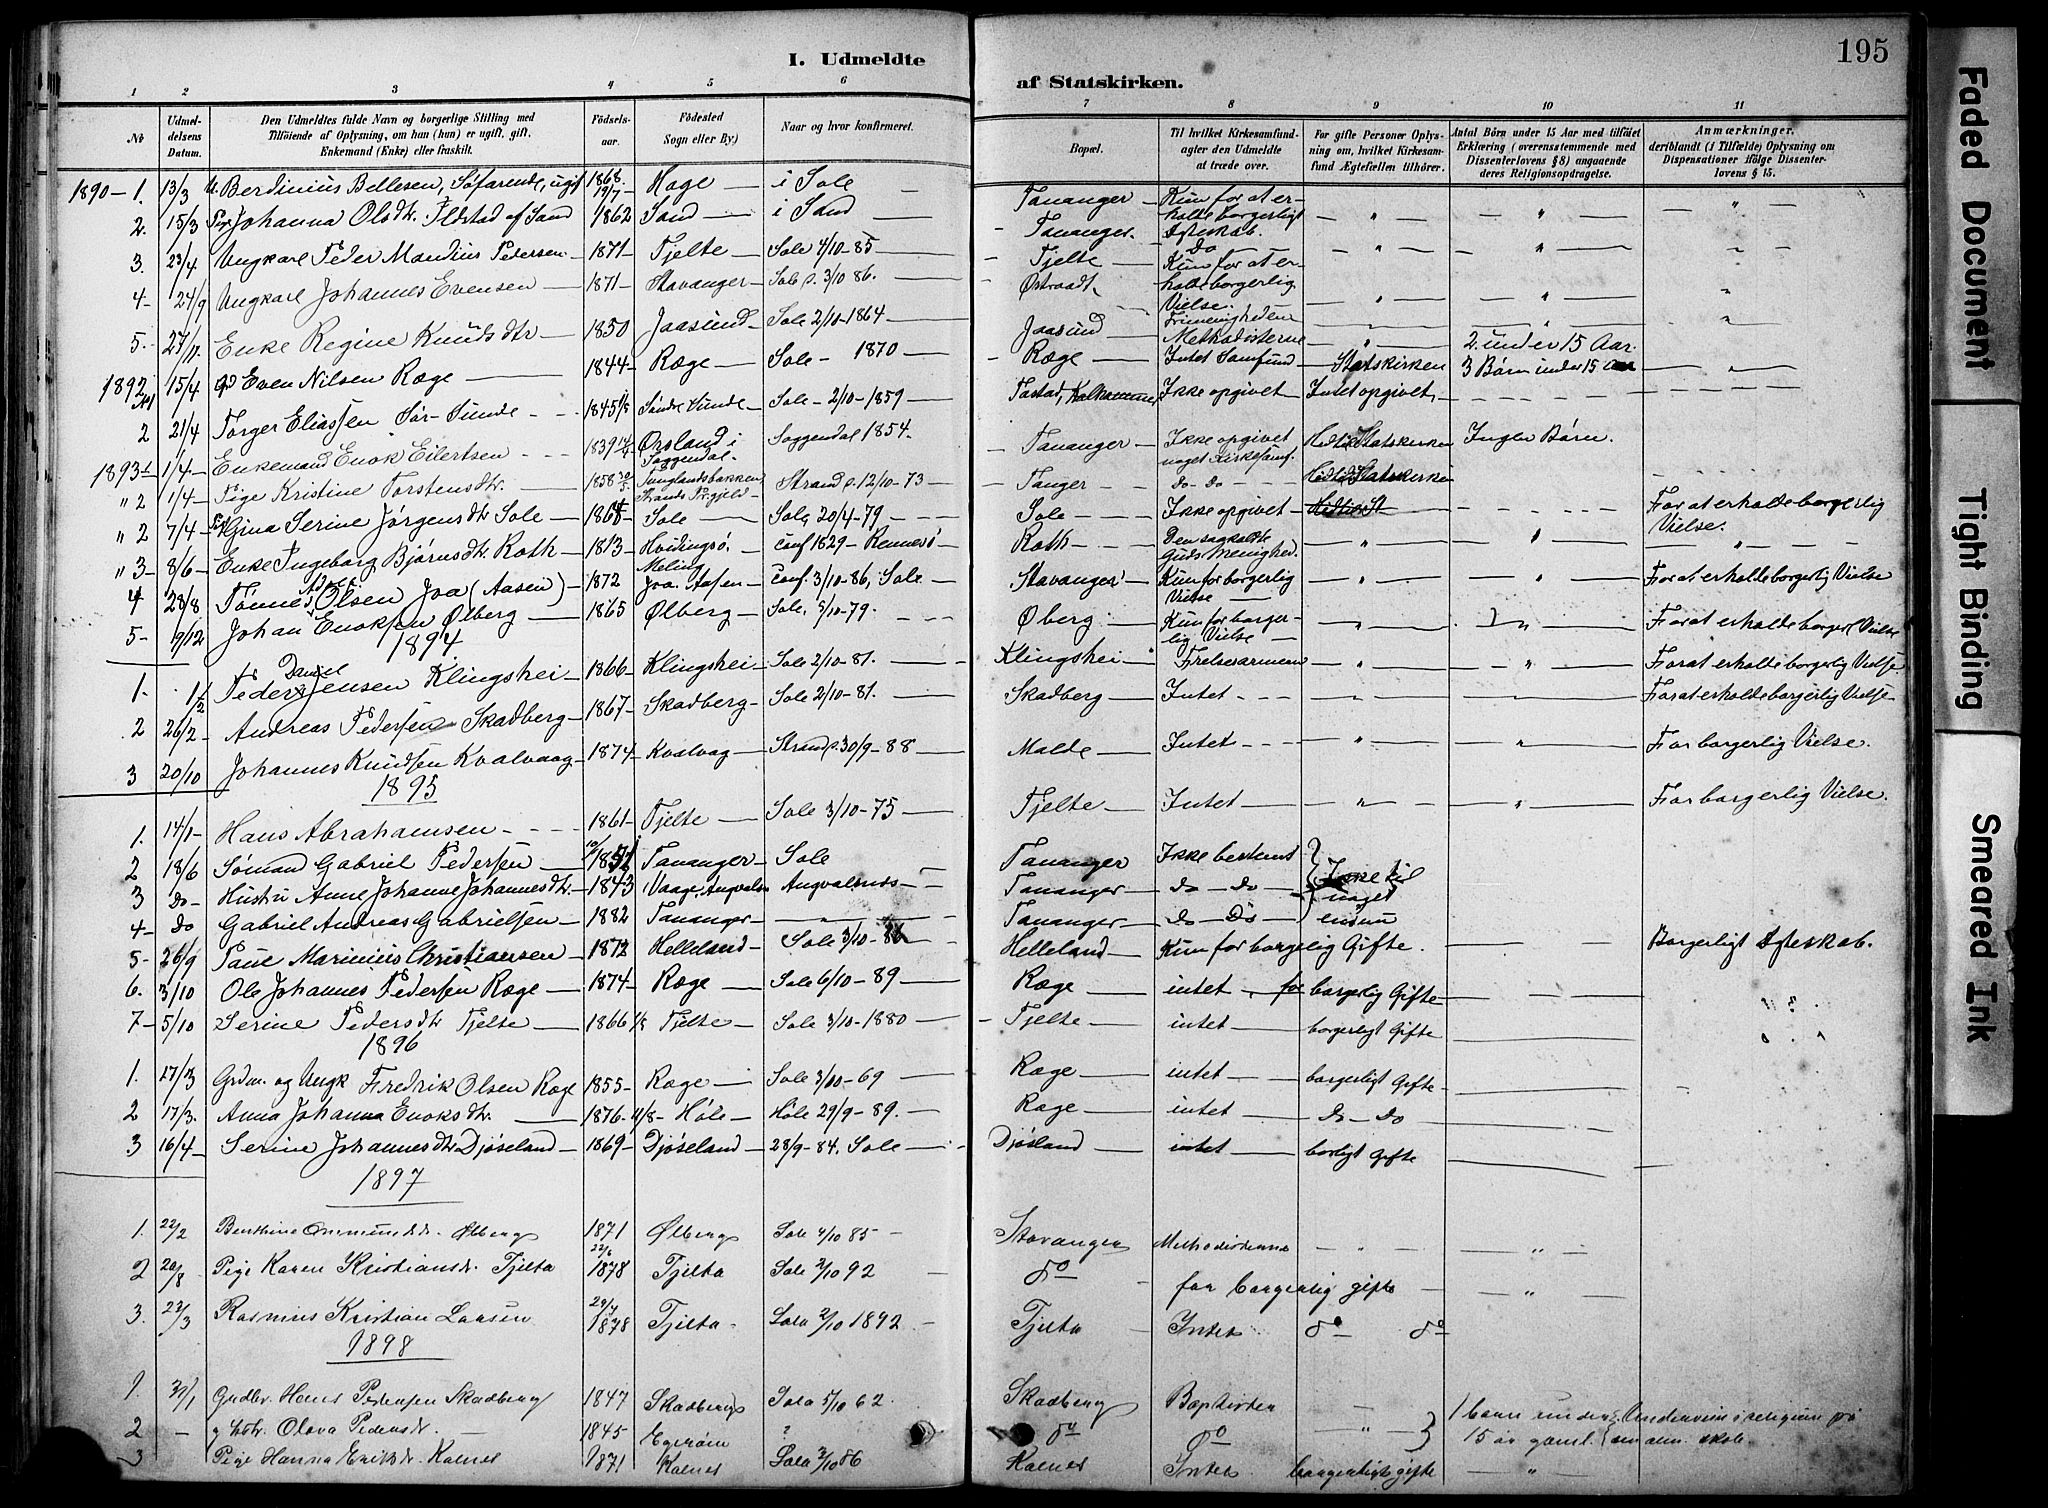 195
I. Udmeldte
af Statskirken.
1 2 3 4 5 6
7 8 9 10 11
No
Udmeldelsens Datum.
Den Udmeldtes fulde Navn og borgerlige Stilling med
Tilføiende af Oplysning, om han (hun) er ugift, gift,
Enkemand (Enke) eller fraskilt.
Fødselsaar.
Fødested
Sogn eller By.)
Naar og hvor konfirmeret.
Bopæl.
Til hvilket Kirkesamfund-
agter den Udmeldte
at træde over.
For gifte Personer Oplys-
ning om, hvilket Kirkesam-
fund Ægtefællen tilhører.
Antal Børn under 15 Aar med tilføiet
Erklæring (overensstemmende med
Dissenterlovens § 8) angaaende
deres Religionsopdragelse.
Anmærkninger,
deriblandt (i Tilfælde) Oplysning om
Dispensationer ifølge Dissenter-
lovens § 15.
1890 - 1. 13/3 Berdinius Bellesen, Søfarende, ugif 1868 Hage - i Sole - Tananger - Kun for at er-holde borgerligt Ægteskab.
2. 15/3 Johanna Olsdtr. af Sand 1862 Sand - i Sand - Tananger. Do
3. 23/4 Ungkarl Peder Mandius Pedersen - 1871 - Tjelte - Sole 4/10-85 - Tjelte - Kun for at er-holde borgerlig Vielse.
4 - 24/9 Ungkarl Johannes Evensen - 1871 - Stavanger - Sole 3/10 86. - Østraadt
5. 27/11 Enke Regine Knudsdtr - 1850 Jaasund - Sole 2/10-1864 - Jaasund - Methodisterne 2 under 15 Aar.
1892 15/4 Even Nilsen Ræge - 1844 - Ræge - Sole - 1870 - Ræge - Intet Samfund - Statskirken 3 Børn under 15 Aar
2 21/4 Torger Eliassen Sør-Sunde - 1845 Søndre Sunde - Sole - 2/10-1859 - Ikke opgivet - Intet opgivet
1893 1 1/4 - Enkemand Enok Eilertsen - 1839 Ørsland i Soggendal - Soggendal 1854. Tananger - Ikke opgivet noget Kirkesamf. Statskirken Ingen Børn.
" 2 1/4 - Pige Kristine Torstensdtr. - 1858 Strand - Strand 12/10-73 - Tanger - Do - Do - Statskirken
" 2 7/4 - Gina Serine Jørgensdtr Sole - Sole - Sole 20/4-79 - Sole - Ikke opgivet - For at erholde borgerlig Vielse.
" 3 - 8/6 - Enke Ingeborg Bjørnsdtr. Roth - 1813 - Hvidingsø. Conf 1829 - Rennesø - Roth - Den sagkaldte Guds Menighed.
4 28/8 Tønnes Olsen Joa (Aasen) - 1872 Joa. Aasen - Conf. 3/10-86, Sole - Stavanger - Kun for borgerlig Vielse - For at erholde borgerlig Vielse
5 - 9/12 Johan Enoksen Ølberg - 1865 Ølberg - Sole. 5/10-79. Øberg - Kun for borger-lig Vielse - For at erholde borgerl Vielse
1894
1. 1/2 Peder Daniel Jensen Klingshei - 1866 - Klingshei - Sole 2/10-81. - Klingshei - Frelsesarmeen - For at erholde borgerlig Vielse
2 26/2 - Andreas Pedersen Skadberg - 1867 - Skadberg - Sole 2/10-81. - Skadberg - Intet - For at erholde borgerlig Vielse
3 20/10 Johannes Knudsen Kvalvaag - 1874 - Kvalvag - Strand 30/9-88 - Malde - Intet - For borgerlig Vielse.
1895
1. 14/1 - Hans Abrahamsen - 1861 - Tjelte - Sole 3/10-75 - Tjelte - Intet - For borgerlig Vielse.
2 18/6 Sømand Gabriel Pedersen - Tananger - Sole Tananger Ikke bestemt
3 Do - Hustru Anne Johanne Johannesdtr. - 1843 Vaage, Augvalds Augvalsnes - Tananger - Do - Do - Ikke til noget endnu
4 - Do Gabriel Andreas Gabrielsen - 1882 - Tananger - Tananger - Do - Do
5 - 26/9 Paul Marinius Christiansen - 1872 - Helleland - Sole 3/10-86 - Helleland - Kun for borgerlig Gifte. Borgerligt Ægteskab.
6. 3/10 Ole Johannes Pedersen Ræge - 1874 - Ræge - Sole 6/10-89 - Ræge - intet - for borgerlig Gifte -
7 - 5/10 Serine Pedersdtr Tjelte - 1866 1/8 Tjelte - Sole 3/10-1880 - Tjelte - intet - borgerligt Gifte
1896
1. 17/3 Grdm. og Ungk Fredrik Olsen Ræge 1855 - Ræge - Sole 3/10-69 - Ræge - intet - borgerligt Gifte -
2 17/3. Anna Johanna Enoksdtr. - 1876 - 4/8 - Høle - Høle 29/9-89. - Ræge - intet - Do - Do
3 16/4 - Serine Johannesdtr Djøseland - 1869 - Djøseland - 28/9-84. Sole - Djøsland - intet - borligt Gifte
1897
1. 22/2 Berthine Ommundsdtr. Ølberg 1871 Ølberg Sole 4/10 85 - Stavanger Methodisterne
2 20/8 Pige Karen Kristiansdtr. Tjelta 22/6 1878 Tjelta Sole 2/10 92 - do - for borgerlig gifte
3. 22/3 Rasmus Kristian Larsen 1878 Tjelta - Sola 2/10 1892 - Tjelta - Intet do do
1898
1. 31/1 Grdbr. Hans Pedersen Skadberg 1847 Skadberg Sola 5/10 62 - Skadberg Baptister 1 barn under 15 år gaml. Undervises i religion på
2 - Olava Pedersdtr. - 1845 - Egersun ? do do
3 Pige Hanna Eriksdr. Kolnes 1871 Kolnes Sola 3/10 86 Kolnes Intet borgerligt gifte
Faded Document
Tight Binding
Smeared Ink